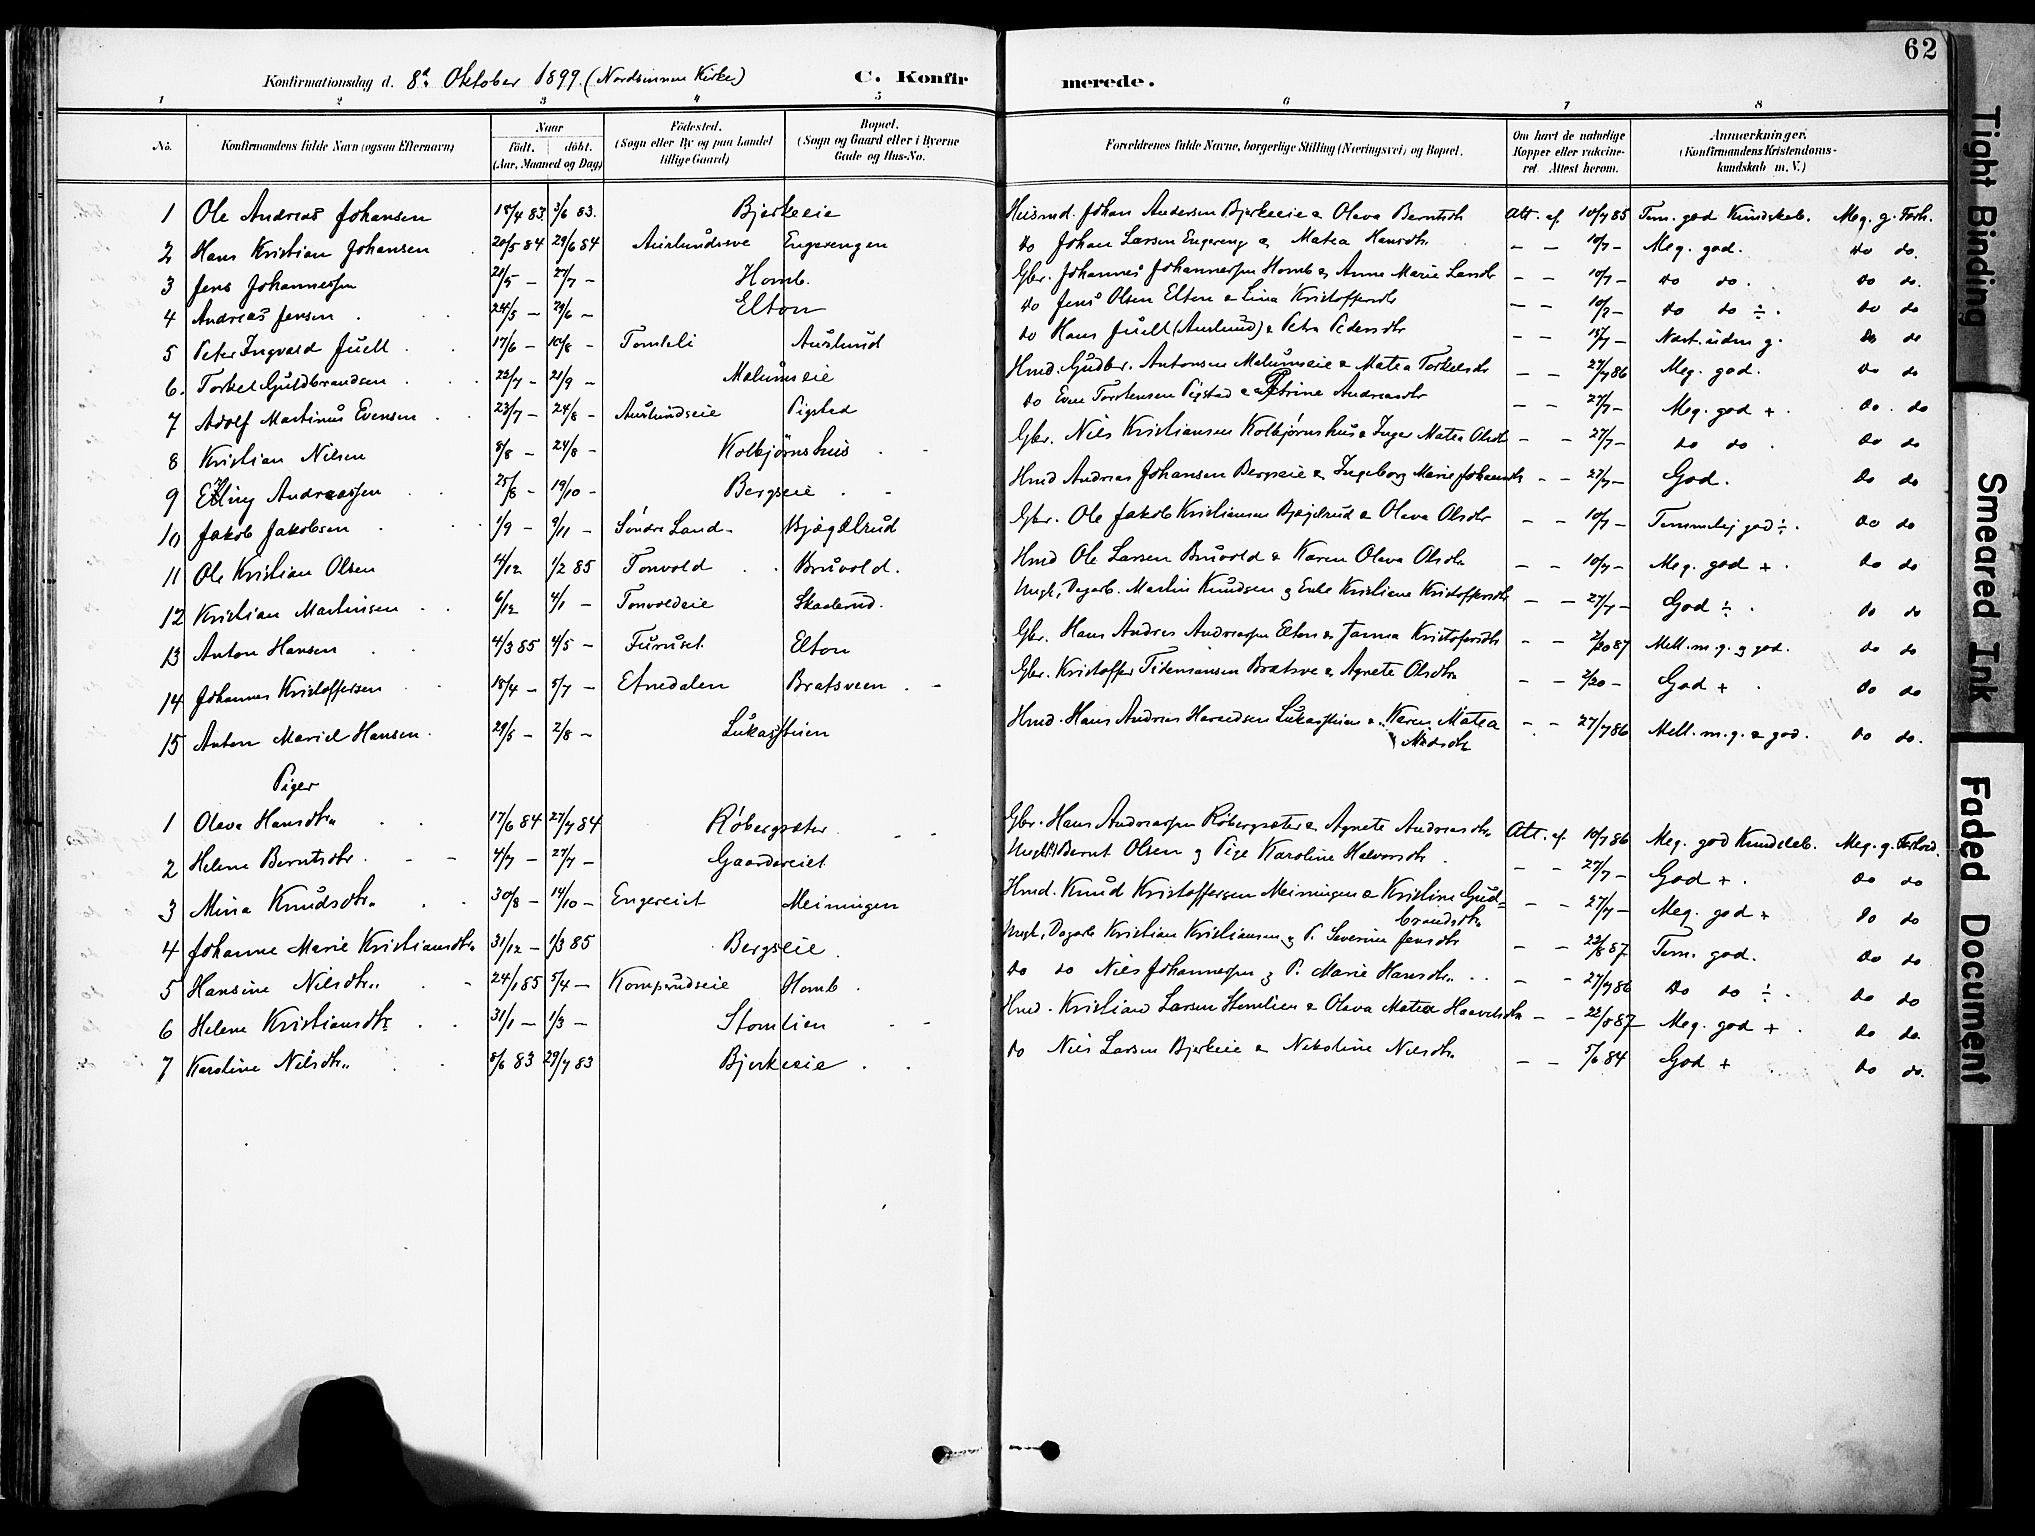 62
Konfirmationsdag d. 8de Oktober 1899. (Nordsinnen Kirke) C. Konfirmerede.
1 2 3 4 5 6 7 8
No. Konfirmandens fulde Navn (ogsaa Efternavn) Naar födt. döbt. (Aar, Maaned og Dag) Födested. (Sogn eller By og paa Landet tillige Gaard) Bopæl. (Sogn og Gaard eller i Byerne Gade og Hus-No. Forældrenes fulde Navne, borgerlige Stilling (Næringsvei) og Bopæl. Om havt de naturlige Kopper eller vakcineret. Attest herom. Anmærkninger. (Konfirmandens Kristendomskundskab m. V.)
1 Ole Andreas Johansen 18/4 83. 3/6 83. Bjerkeeie Husmd. Johan Andersen Bjerkeeie & Olava Berntsdtr Att. af 10/7 85 Tem. god Kundskab. Meg. g. Forh.
2 Hans Kristian Johansen 20/5 84 29/6 84 Auslundseie Engerengen do Johan Larsen Engereng & Matea Hansdtr. — — 10/7 — Meg. god. do do.
3 Jens Johannessen 21/5 — 27/7 — Homb. Gbr. Johannes Johannessen Homb & Anne Marie Larsdtr — — 10/7 — do do. do do.
4 Andreas Jensen 24/5 — 29/6 — Elton do Jens Olsen Elton & Lina Kristoffersdtr — — 10/7 — do do ÷. do do
5 Peter Ingvald Juell 17/6 — 10/8 — Tomleli Auslund do Hans Juell (Auslund) & Petra Pedersdtr — — 15/7 — Næst. uden g. do do
6. Torkel Guldbrandsen 22/7 — 21/9 — Malumseie Hmd. Gudbr. Antonsen Malumseie & Matea Torkelsdtr — — 27/7 86 Meg. god. do do
7 Adolf Martinus Evensen 23/7 — 24/8 — Auslundseie Pigstad do Even Torstensen Pigstad & Petrine Andreasdtr — — 27/7 — Meg. god + do. do
8 Kristian Nilsen 8/8 — 24/8 — Kolbjørnshus Gbr. Nils Kristiansen Kolbjørnshus & Inger Matea Olsdtr — — 27/7 — do do. do do
9 Elling Andreassen 25/8 — 19/10 — Bergseie Hmd Andreas Johansen Bergseie & Ingeborg Marie Johansdtr — — 27/7 — God. do do
10 Jakob Jakobsen 1/9 — 9/11 — Söndre Land — Bjøgelrud Gbr. Ole Jakob Kristiansen Bjøgelrud & Olava Olsdtr — — 10/7 — Temmelig god ÷. do do
11 Ole Kristian Olsen 14/12 1/2 85 Tonvold Bruvold. Hmd Ole Larsen Bruvold & Karen Olava Olsdtr — — 10/7 — Meg. god +. do do
12 Kristian Martinsen 6/12 4/1 — Tonvoldeie Skaalrud. Ungk, Dagarb. Martin Knudsen og Enke Kristiane Kristoffersdtr — — 27/7 — God ÷. do do
13 Anton Hansen 4/3 85 4/5 — Furuset Elton Gbr. Hans Andres Andreassen Elton & Janna Kristofersdtr — — 2/20 87 Mell. m. g. og god. do do
14 Johannes Kristoffersen 18/4 — 5/7 — Etnedalen Bratsveen Gbr. Kristoffer Bratsve & Agnete Olsdtr — — 2/20 — God +. do do
15 Anton Mariel Hansen 29/5 — 2/8 — Lukasstuen Hmd. Hans Andreas Lukasstuen & Karen Matea — — 27/7 86 Mell. m. g. & god. do do.
Nilsdtr
Piger
1 Oleva Hansdtr 17/6 84 27/7 84 Røbergsæter Gbr. Hans Andreassen Røbergsæter & Agnete Andreasdtr Att. af. 10/7 86 Meg. god Kundskab. Meg. g. Forhold.
2 Helene Berntsdtr. 4/7 — 27/7 — Gaardereiet Ungk. Bernt Olsen og Pige Karoline Halvorsdtr. — — 27/7 — God +. do do
3 Mina Knudsdtr. 30/8 — 14/10 — Engereiet Meiningen Hmd. Knud Kristoffersen Meiningen & Kristine Gud= — — 27/7 — Meg. god + do do
brandsdtr
4 Johanne Marie Kristiansdtr 31/12 — 1/3 85 Bergseie. Ungk, Dagarb Kristian Kristiansen og P. Severine Jensdtr — — 22/8 87 Tem. god. do do
5 Hansine Nilsdtr. 24/1 85 5/4 — Komperudseie Homb. do do Nils Johannessen og P. Marie Hansdtr. — — 27/7 86 do do ÷. do do
6 Helene Kristiansdtr 31/1 — 1/3 — Stomlien Hmd. Kristian Larsen Stomlien & Olava Matea Haavelsdtr — — 22/8 87 — Meg. god +. do do.
7 Karoline Nilsdtr. 8/6 83 29/7 83 Bjerkeeie. do Nils Larsen Bjerkeie & Nikoline Nilsdtr — — 5/6 84 God + do do.
Tight Binding
Smeared Ink
Faded Document